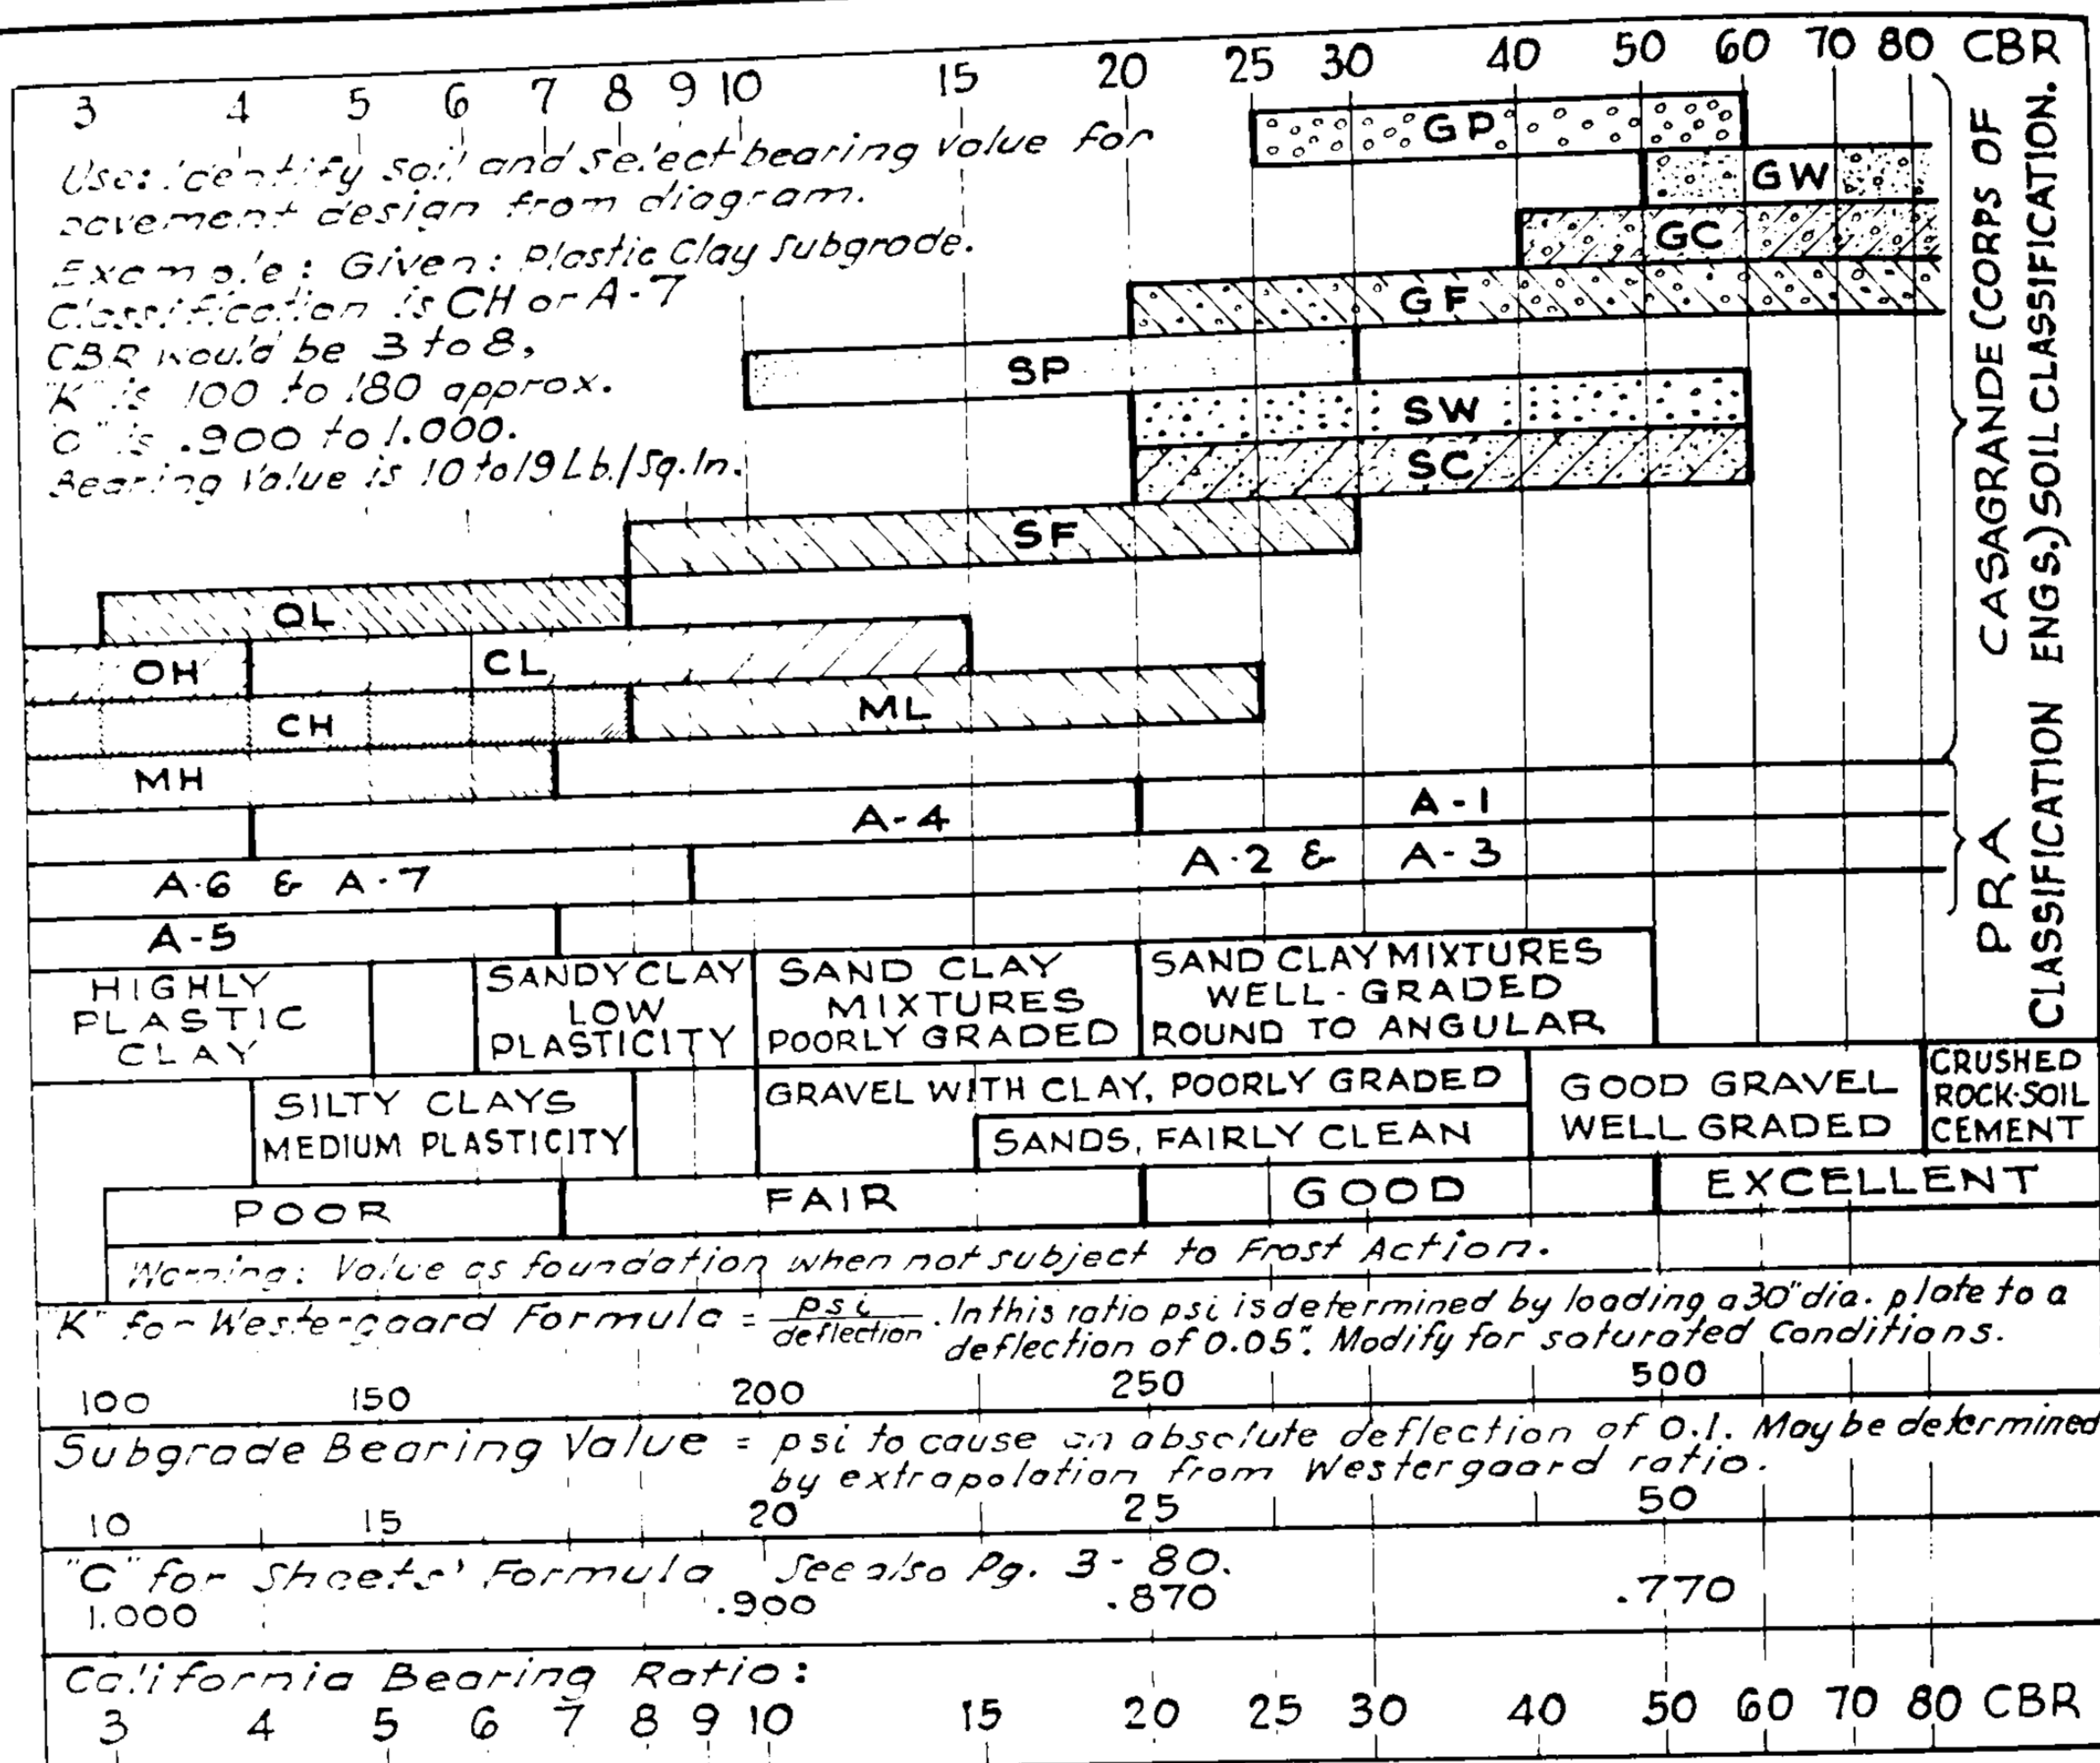 3 4 5 6 7 8 9 10 15 20 25 30 40 50 60 70 80 CBR
Use: Identify soil and select bearing value for
pavement design from diagram.
Example: Given: Plastic Clay Subgrade.
Classification is CH or A-7
CBR would be 3 to 8,
"K" is 100 to 180 approx.
"C" is .900 to 1.000.
Bearing Value is 10 to 19 Lb./Sq.In.
GP
GW
GC
GF
SP
SW
SC
SF
OL
OH CL
CH ML
MH
CASAGRANDE (CORPS OF
ENGS.) SOIL CLASSIFICATION.
A-4 A-1
A-6 & A-7 A-2 & A-3
A-5
PRA
CLASSIFICATION
HIGHLY
PLASTIC
CLAY
SANDY CLAY
LOW
PLASTICITY
SAND CLAY
MIXTURES
POORLY GRADED
SAND CLAY MIXTURES
WELL-GRADED
ROUND TO ANGULAR
SILTY CLAYS
MEDIUM PLASTICITY
GRAVEL WITH CLAY, POORLY GRADED
SANDS, FAIRLY CLEAN
GOOD GRAVEL
WELL GRADED
CRUSHED
ROCK-SOIL
CEMENT
POOR FAIR GOOD EXCELLENT
Warning: Value as foundation when not subject to Frost Action.
"K" for Westergaard Formula = psi / deflection . In this ratio psi is determined by loading a 30" dia. plate to a
deflection of 0.05". Modify for saturated Conditions.
100 150 200 250 500
Subgrade Bearing Value = psi to cause an absolute deflection of 0.1. May be determined
by extrapolation from Westergaard ratio.
10 15 20 25 50
"C" for Sheets' Formula See also Pg. 3-80.
1.000 .900 .870 .770
California Bearing Ratio:
3 4 5 6 7 8 9 10 15 20 25 30 40 50 60 70 80 CBR